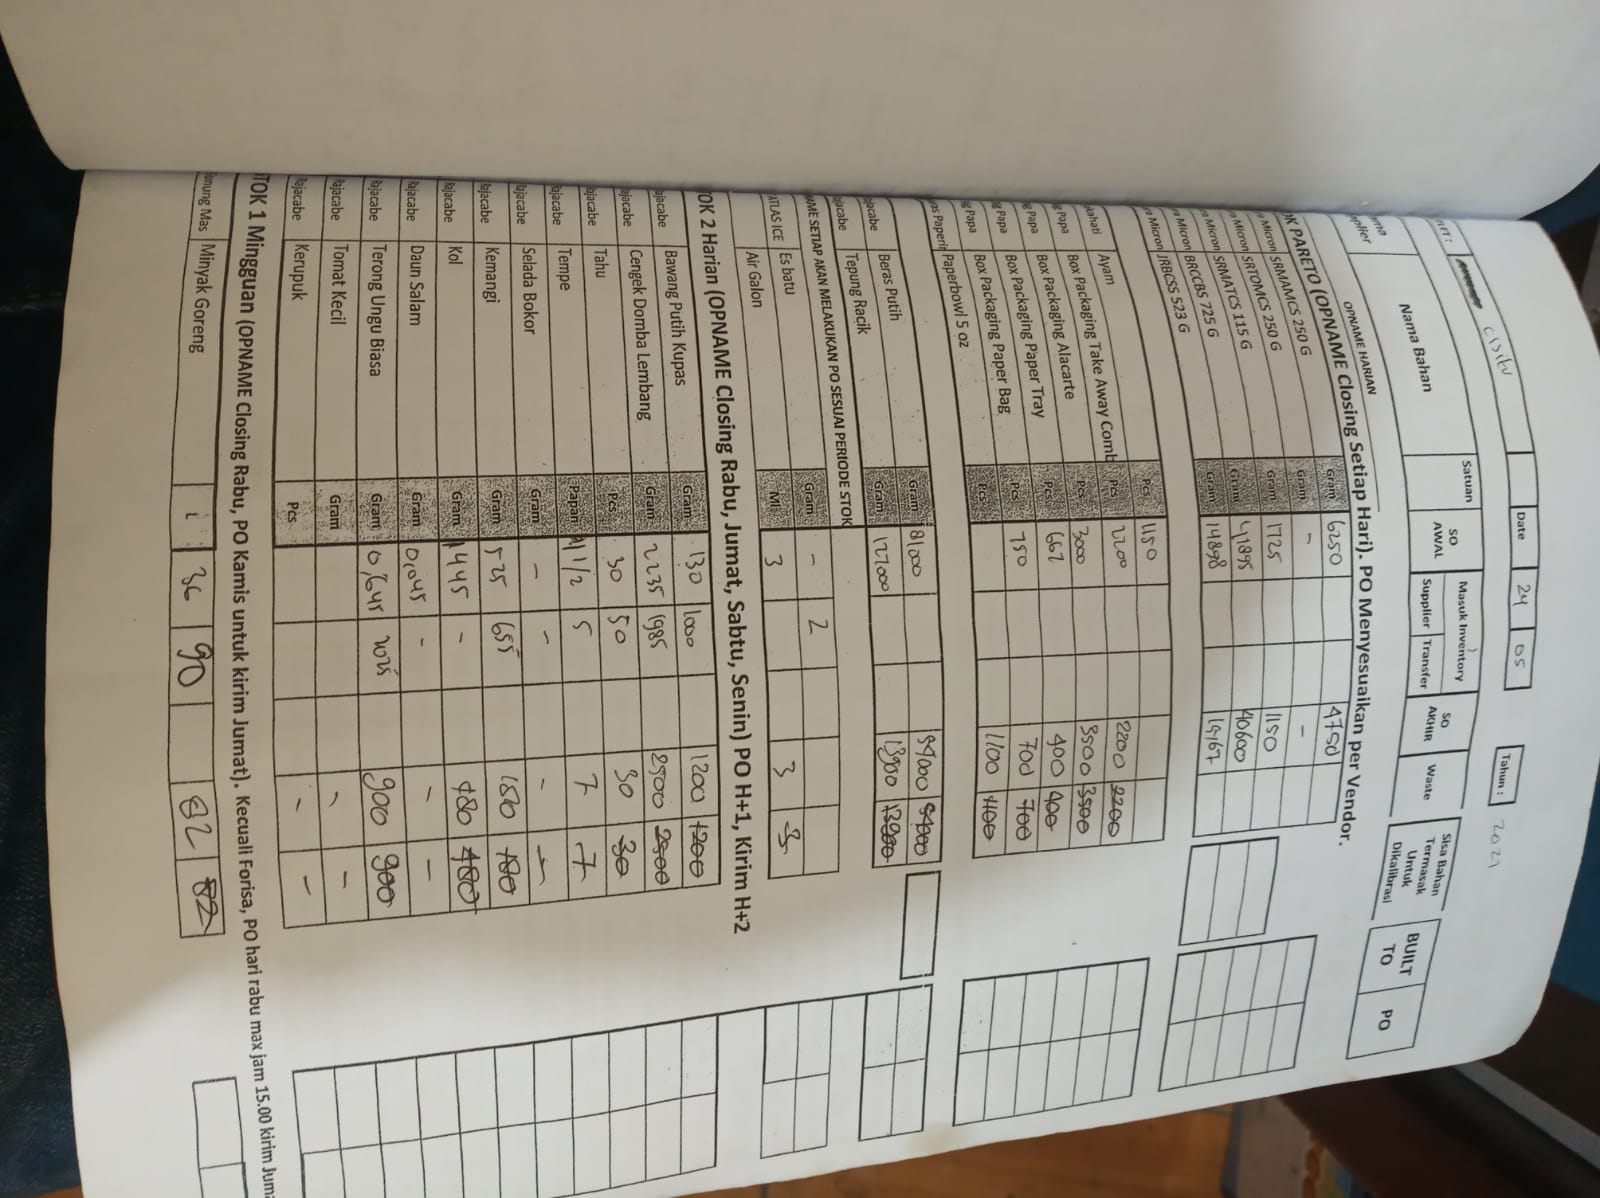 OUTLET : Cisitu Date 24 05 Tahun : 2021
OPNAME HARIAN
Nama Bahan Satuan SO AWAL Masuk Inventory Supplier Transfer SO AKHIR Waste Sisa Bahan Termasak Untuk Dikalibrasi BUILT TO PO
PARETO (OPNAME Closing Setiap Hari). PO Menyesuaikan per Vendor.
Micron SRMAMCS 250 G Gram 6250 4750
Micron SRTOMCS 250 G Gram - -
Micron SRMATCS 115 G Gram 1725 1150
Micron BRCCBS 725 G Gram 41895 40600
Micron JRBCSS 523 G Gram 14898
Ayam Pcs 1150
Papa Box Packaging Take Away Comb Pcs 2200 2200 2200
Papa Box Packaging Alacarte Pcs 3000 3500 3500
Papa Box Packaging Paper Tray Pcs 400 400
Papa Box Packaging Paper Bag Pcs 750 700 700
Paperbowl 5 oz Pcs 1100 1100
ajacabe Beras Putih Gram 81000
ajacabe Tepung Racik Gram 127000
SETIAP AKAN MELAKUKAN PO SESUAI PERIODE STOK
ATLAS ICE Es batu Gram - 2
Air Galon Ml 3 3 3
TOK 2 Harian (OPNAME Closing Rabu, Jumat, Sabtu, Senin) PO H+1, Kirim H+2
ajacabe Bawang Putih Kupas Gram 130 1000 1200 1200
ajacabe Cengek Domba Lembang Gram 2235 1985 2500 2500
ajacabe Tahu Pcs 30 50 30 30
ajacabe Tempe Papan 1 1/2 5 7 7
ajacabe Selada Bokor Gram - - - -
ajacabe Kemangi Gram 525 655 180 180
Rajacabe Kol Gram 1445 - 480 480
Rajacabe Daun Salam Gram 0,045 - - -
Rajacabe Terong Ungu Biasa Gram 0,645 2025 900 900
Rajacabe Tomat Kecil Gram - -
Rajacabe Kerupuk Pcs - -
STOK 1 Mingguan (OPNAME Closing Rabu, PO Kamis untuk kirim Jumat). Kecuali Forisa, PO hari rabu max jam 15.00 kirim Juma
Gunung Mas Minyak Goreng 36 90 82 82